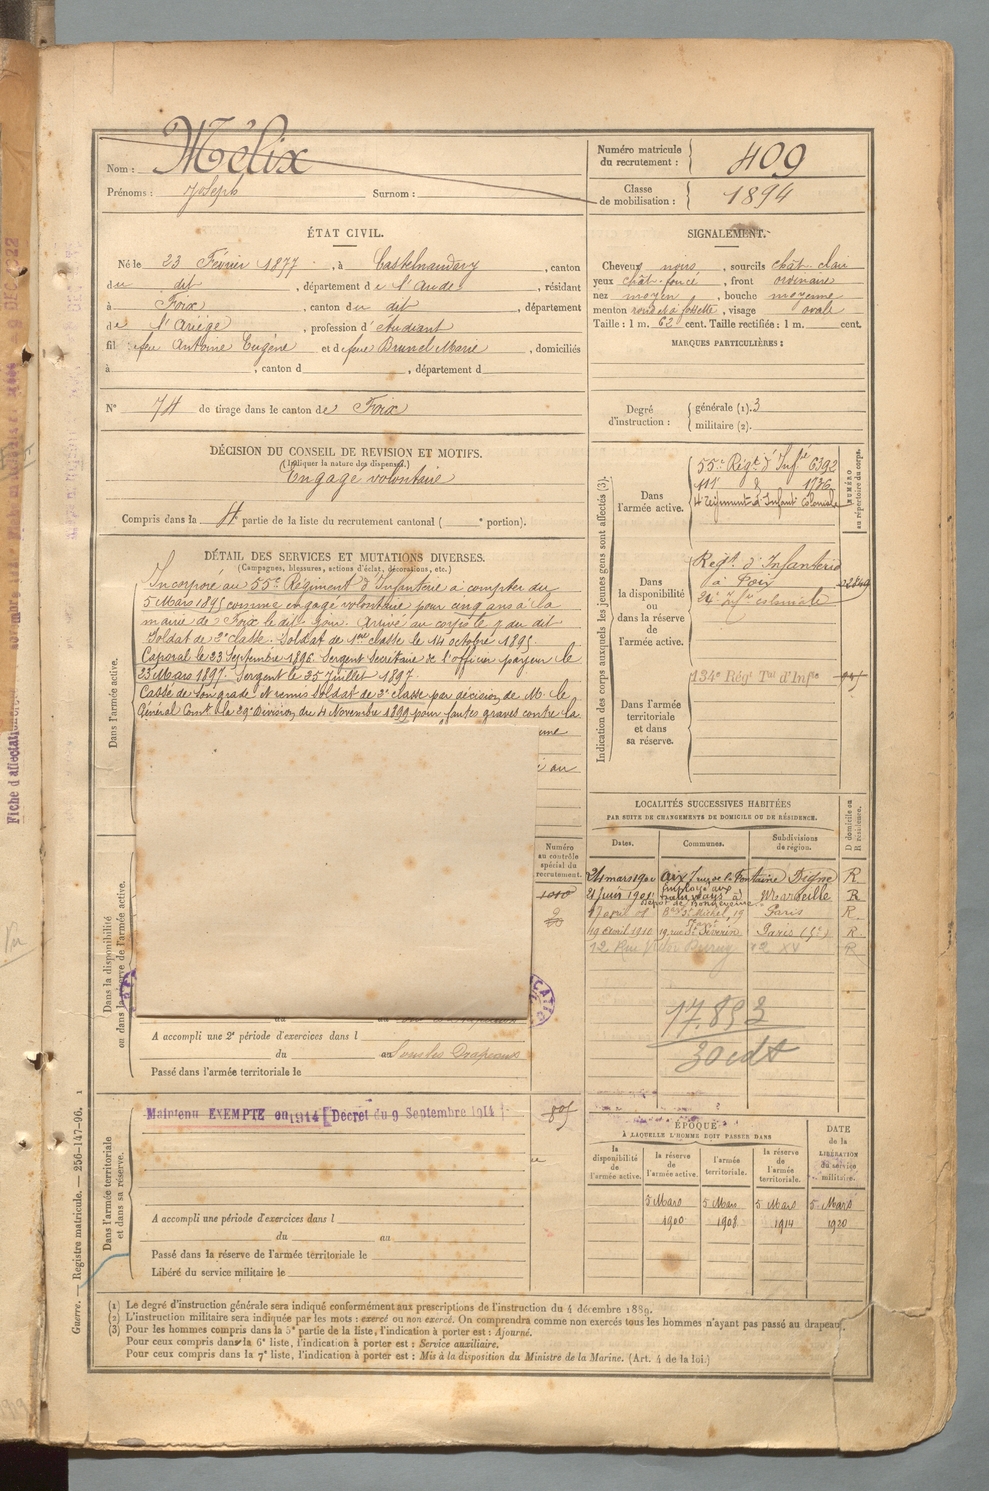 Nom : Mélix
Prénoms : Joseph Surnom :
Numéro matricule du recrutement : 409
Classe de mobilisation : 1894
ÉTAT CIVIL.
Né le 23 Février 1877, à Castelnaudary, canton
du dit, département de l'Aude, résidant
à Foix, canton du dit, département
de l'Ariège, profession d'étudiant
fils de feu Antoine Eugène et de feue Brunel Marie, domiciliés
à , canton d , département d
N° 74 de tirage dans le canton de Foix
SIGNALEMENT.
Cheveux noirs, sourcils chât. clair
yeux chât. foncé, front ordinaire
nez moyen, bouche moyenne
menton rond et à fossette, visage ovale
Taille : 1 m. 62 cent. Taille rectifiée : 1 m. cent.
MARQUES PARTICULIÈRES :
Degré d'instruction : générale (1). 3
militaire (2).
DÉCISION DU CONSEIL DE REVISION ET MOTIFS.
(Indiquer la nature des dispenses.)
Engagé volontaire
Compris dans la 4e partie de la liste du recrutement cantonal ( e portion).
DÉTAIL DES SERVICES ET MUTATIONS DIVERSES.
(Campagnes, blessures, actions d'éclat, décorations, etc.)
Dans l'armée active.
Incorporé au 55e Régiment d'Infanterie à compter du
5 Mars 1895 comme engagé volontaire pour cinq ans à la
mairie de Foix le dit jour. Arrivé au corps le 7 du dit
Soldat de 2e classe. Soldat de 1re classe le 14 octobre 1895.
Caporal le 23 Septembre 1896. Sergent Secrétaire de l'officier payeur le
23 Mars 1897. Sergent le 25 Juillet 1897.
Cassé de son grade et remis soldat de 2e classe par décision de M. le
Général Comt la 29e Division, du 4 Novembre 1899 pour fautes graves contre la
au
Indication des corps auxquels les jeunes gens sont affectés (3).
NUMÉRO au répertoire du corps.
Dans l'armée active.
55e Régt d'Infie 6392
111e d° 1736
4e Régiment d'Infant. Coloniale
Dans la disponibilité ou dans la réserve de l'armée active.
Regt. d'Infanterie
à Foix
Infie coloniale
Dans l'armée territoriale et dans sa réserve.
134e Rég Tal d'Infie
LOCALITÉS SUCCESSIVES HABITÉES
PAR SUITE DE CHANGEMENTS DE DOMICILE OU DE RÉSIDENCE.
Dates. Communes. Subdivisions de région. D domicile ou R résidence.
24 mars 1900 Aix 7 rue de la Fontaine Digne R
21 juin 1901 Employé aux tramways à Marseille R
17 avril Bd St Michel, 19 Paris R.
19 avril 1910 19, rue St Séverin Paris (5e) R
12 Rue Victor Duruy XV R
17.853
30 cdt
Numéro au contrôle spécial du recrutement.
1010
Dans la disponibilité ou dans la réserve de l'armée active.
A accompli une 2e période d'exercices dans l
du au Sous les Drapeaux
Passé dans l'armée territoriale le
Dans l'armée territoriale et dans sa réserve.
Maintenu EXEMPTÉ en 1914 [Décret du 9 Septembre 1914]
A accompli une période d'exercices dans l
du au
Passé dans la réserve de l'armée territoriale le
Libéré du service militaire le
ÉPOQUE
À LAQUELLE L'HOMME DOIT PASSER DANS
la disponibilité de l'armée active. la réserve de l'armée active. l'armée territoriale. la réserve de l'armée territoriale.
DATE de la LIBÉRATION du service militaire.
5 Mars 5 Mars 5 Mars 5 Mars
1900 1908 1914 1920
(1) Le degré d'instruction générale sera indiqué conformément aux prescriptions de l'instruction du 4 décembre 1889.
(2) L'instruction militaire sera indiquée par les mots : exercé ou non exercé. On comprendra comme non exercés tous les hommes n'ayant pas passé au drapeau.
(3) Pour les hommes compris dans la 5e partie de la liste, l'indication à porter est : Ajourné.
Pour ceux compris dans la 6e liste, l'indication à porter est : Service auxiliaire.
Pour ceux compris dans la 7e liste, l'indication à porter est : Mis à la disposition du Ministre de la Marine. (Art. 4 de la loi.)
Guerre. — Registre matricule. — 256-147-96. 1